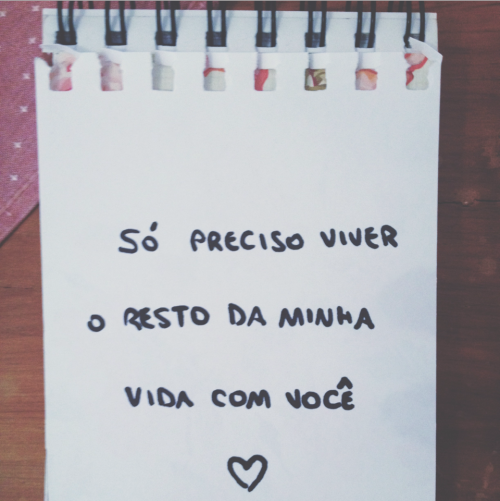 SÓ PRECISO VIVER
O RESTO DA MINHA
VIDA COM VOCÊ